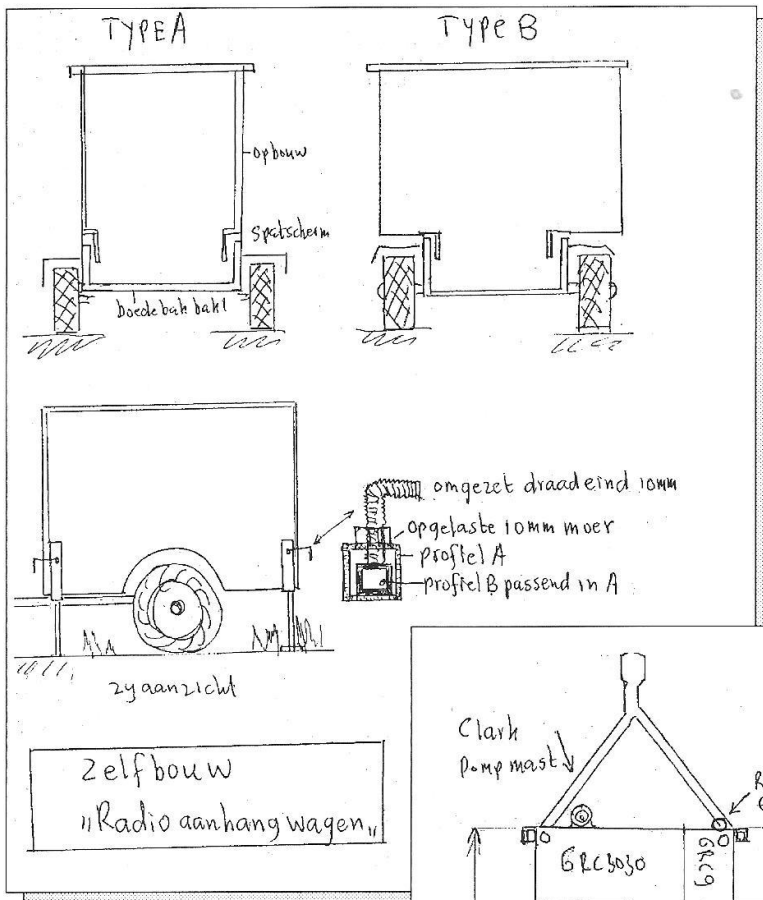 TYPE A
TYPE B
opbouw
spatscherm
omgezet draadeind 10mm
opgelaste 10mm moer
profiel A
profiel B passend in A
zyaanzicht
Zelfbouw
"Radio aanhangwagen"
Clark
Pompmast
R
GRC3030
GRC9